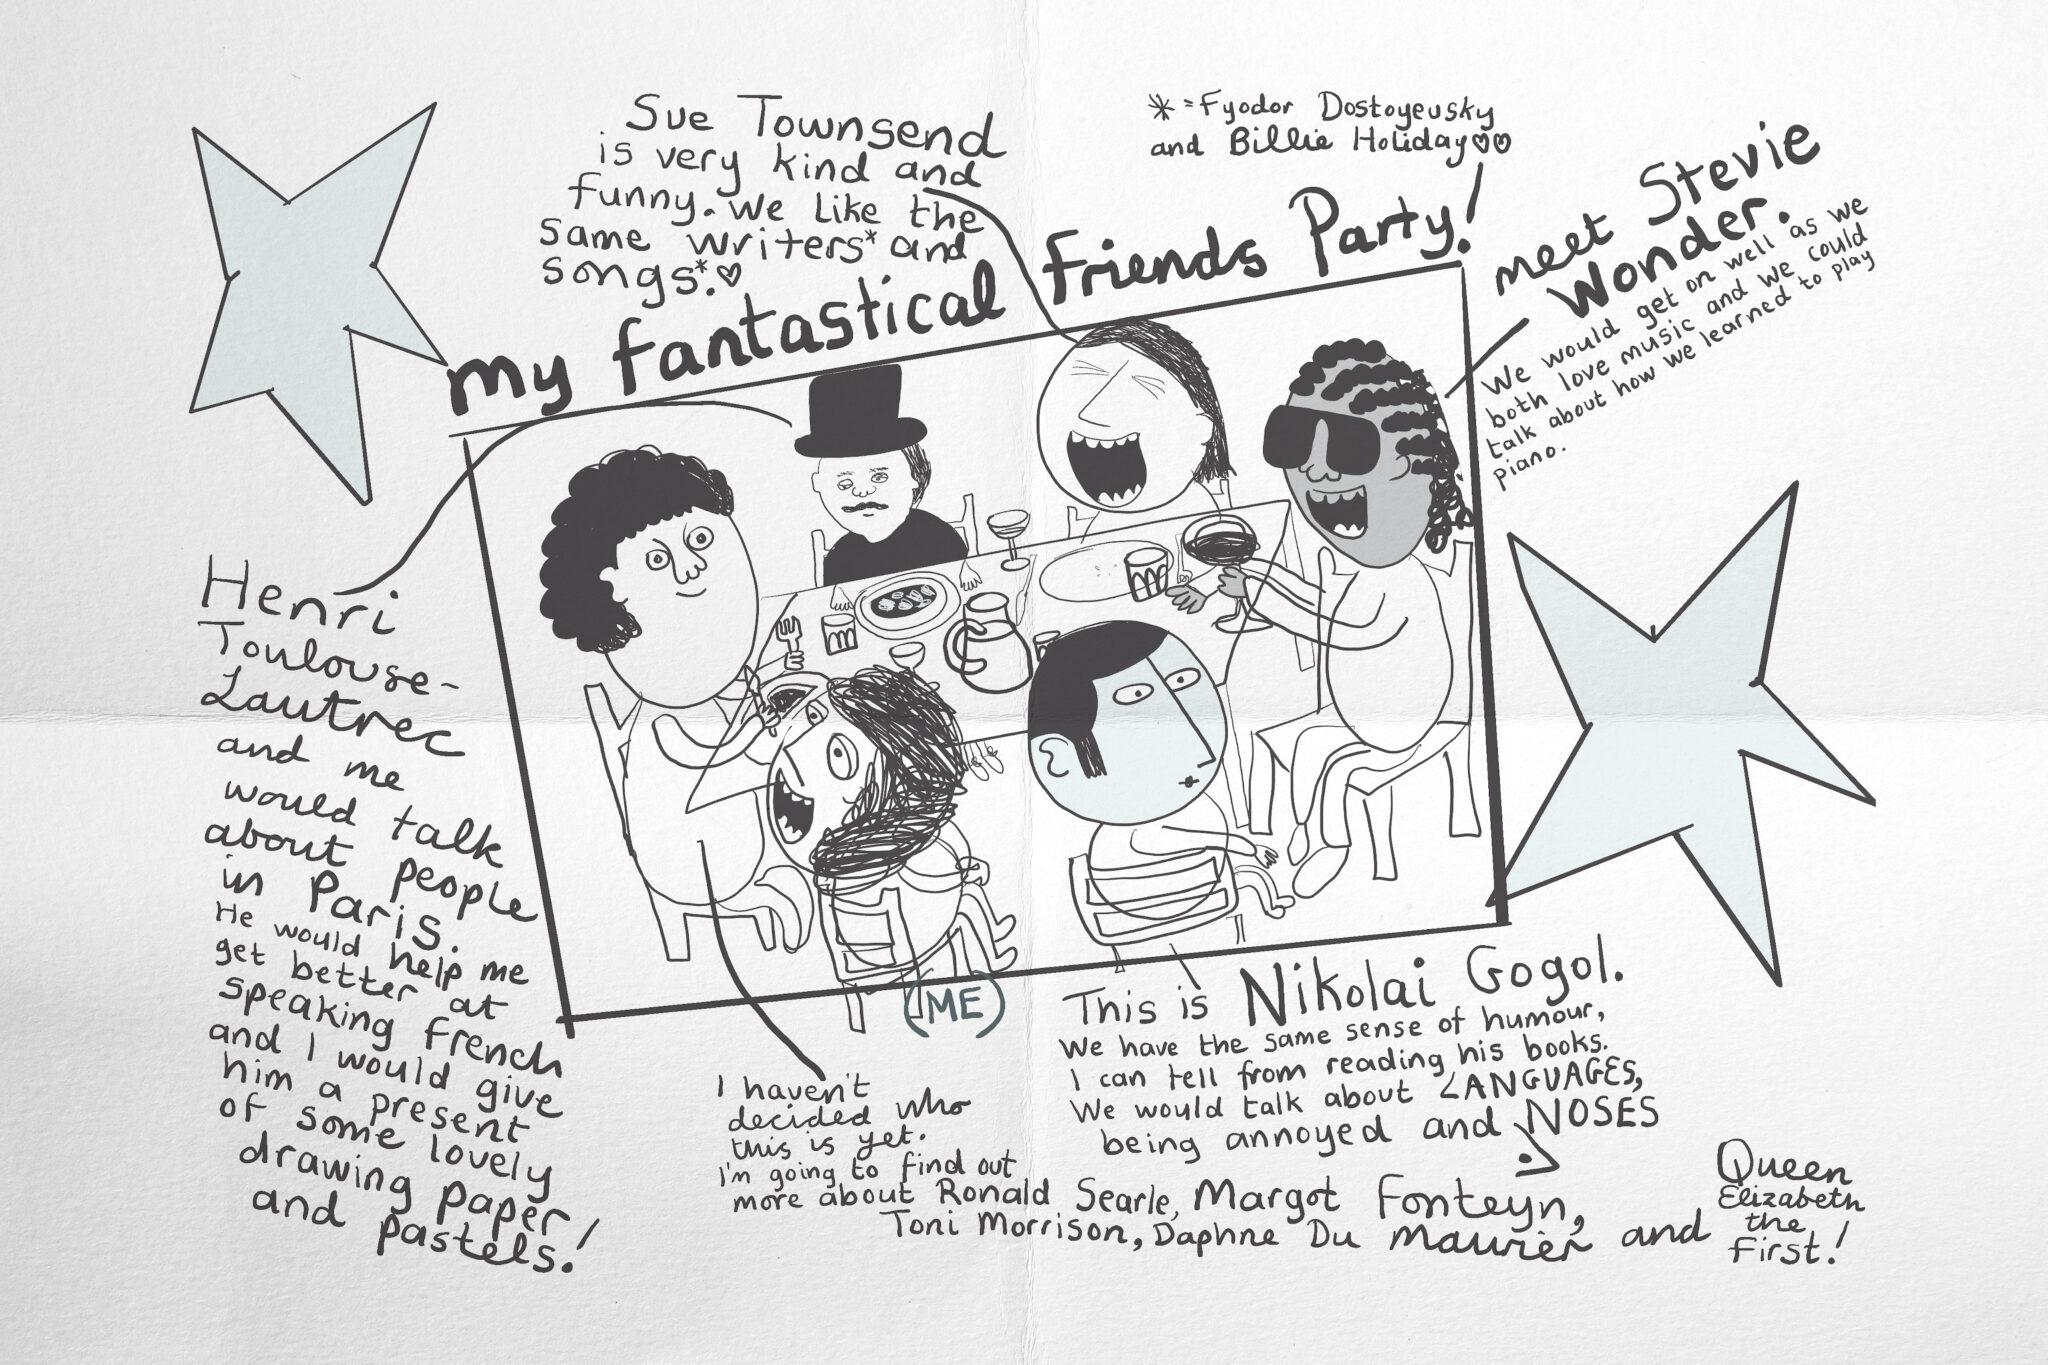 Sue Townsend
is very kind and
funny. We like the
same writers* and
songs.*♡
*=Fyodor Dostoyevsky
and Billie Holiday♡♡
my fantastical friends Party!
meet Stevie
Wonder.
We would get on well as we
both love music and we could
talk about how we learned to play
piano.
Henri
Toulouse-
Lautrec
and me
would talk
about people
in Paris.
He would help me
get better at
speaking french
and I would give
him a present
of some lovely
drawing paper
and pastels!
(ME)
I haven't
decided who
this is yet.
I'm going to find out
more about Ronald Searle, Margot Fonteyn,
Toni Morrison, Daphne Du Maurier and Queen
Elizabeth
the
First!
This is Nikolai Gogol.
We have the same sense of humour,
I can tell from reading his books.
We would talk about LANGUAGES,
being annoyed and NOSES